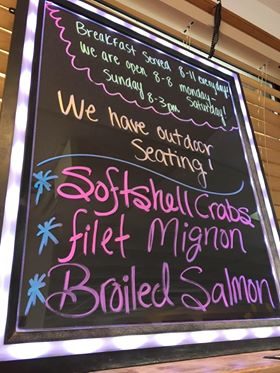 Breakfast Served 8-11 everyday!
We are open 8-8 monday-
Saturday!
Sunday 8-3pm
We have outdoor
Seating!
* Softshell Crabs
* filet Mignon
* Broiled Salmon